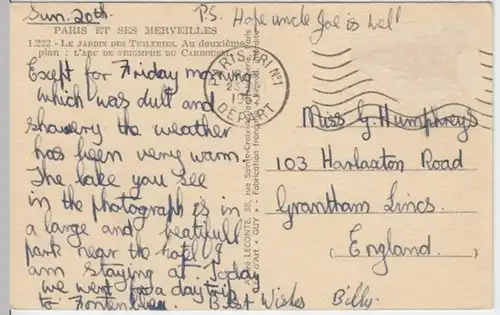 Sun. 20th.
P.S. Hope uncle Joe is well
PARIS ET SES MERVEILLES
1.222 - LE JARDIN DES TUILERIES. Au deuxième
plan : L'ARC DE TRIOMPHE DU CARROUSEL
Except for Friday morning
which was dull and
showery the weather
has been very warm.
The lake you see
in the photograph is in
a large and beautifull
park near the hotel I
am staying at. Today
we went for a day trip
to Fontenblea. Best Wishes Billy.
PARIS-TRI N°1
DEPART
ANDRÉ LECONTE, 38, rue Sainte-Croix-de-la-Bretonnerie, Paris
"GUY" - Fabrication française
Miss G. Humphreys
103 Harlaxton Road
Grantham Lincs.
(England.